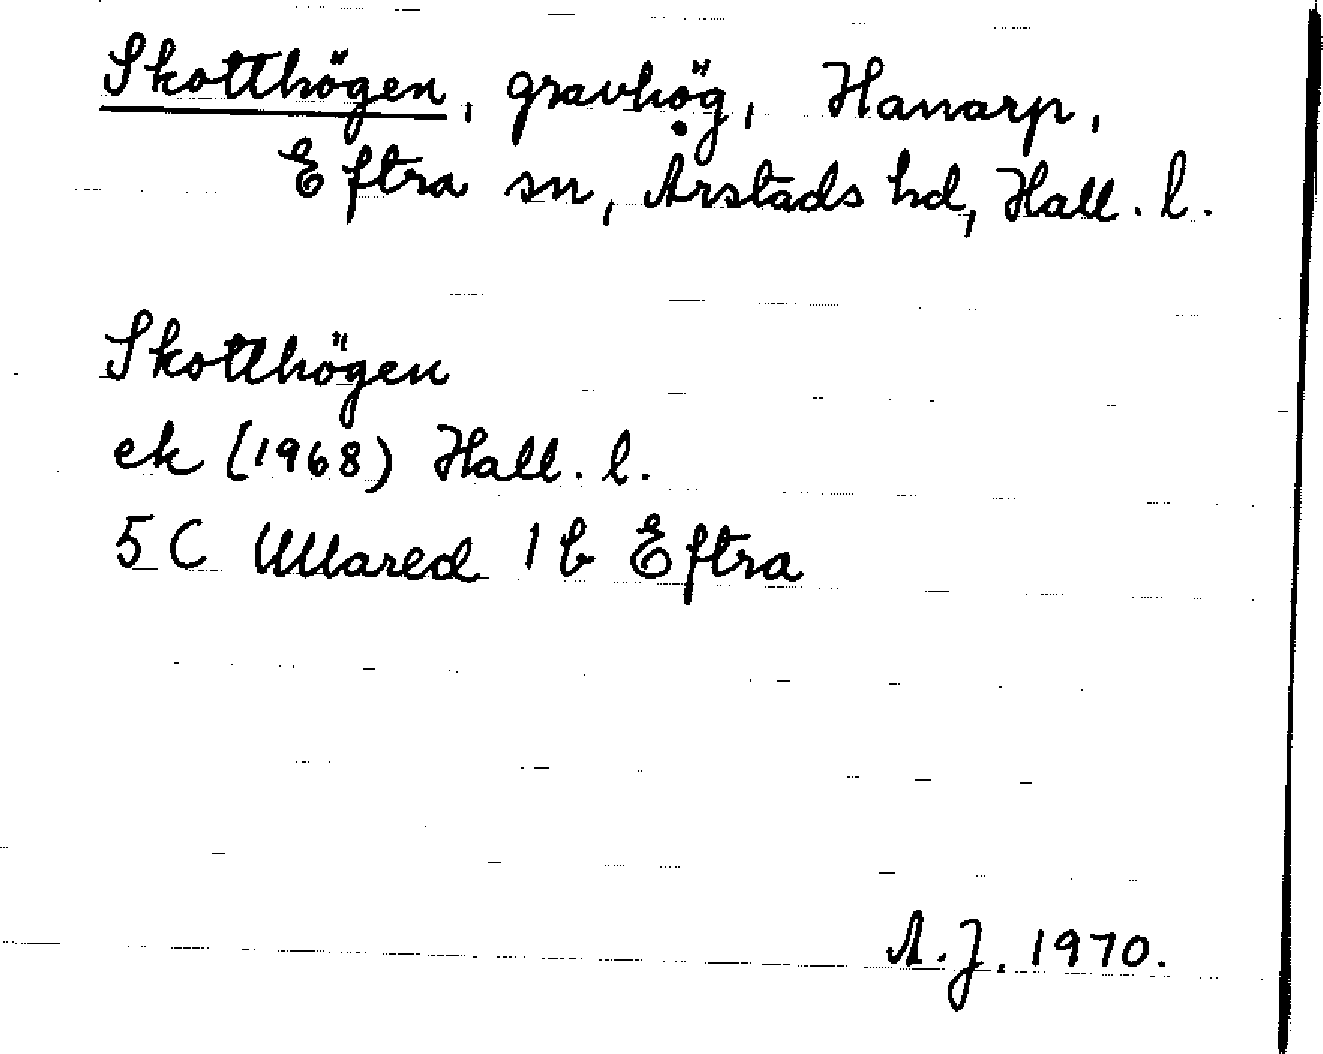 Skotthögen, gravhög, Hanarp,
Eftra sn, Årstads hd, Hall. l.
Skotthögen
ek (1968) Hall. l.
5C Ullared 1b Eftra
A.J. 1970.